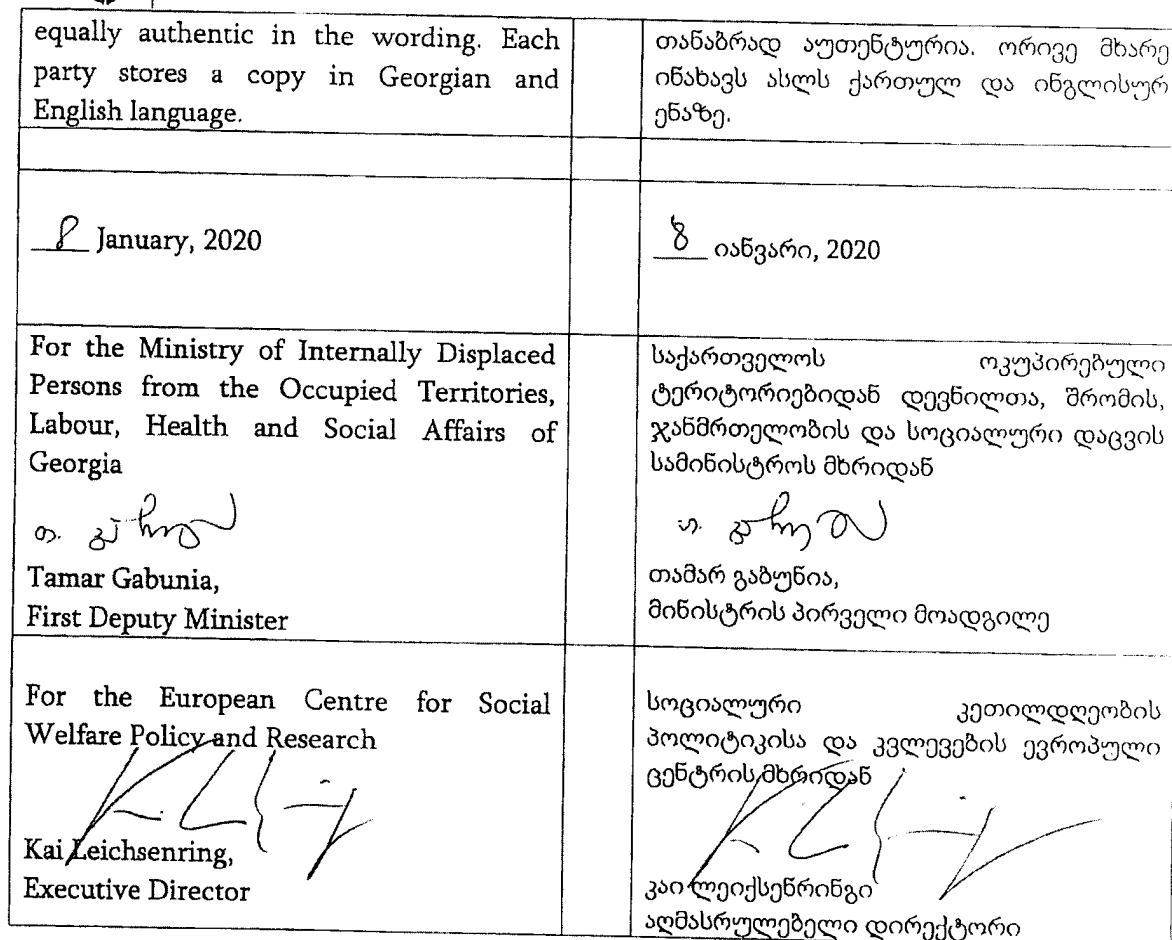 equally authentic in the wording. Each
party stores a copy in Georgian and
English language.
თანაბრად აუთენტურია. ორივე მხარე
ინახავს ასლს ქართულ და ინგლისურ
ენაზე.
8 January, 2020
8 იანვარი, 2020
For the Ministry of Internally Displaced
Persons from the Occupied Territories,
Labour, Health and Social Affairs of
Georgia
Tamar Gabunia,
First Deputy Minister
საქართველოს ოკუპირებული
ტერიტორიებიდან დევნილთა, შრომის,
ჯანმრთელობის და სოციალური დაცვის
სამინისტროს მხრიდან
თამარ გაბუნია,
მინისტრის პირველი მოადგილე
For the European Centre for Social
Welfare Policy and Research
Kai Leichsenring,
Executive Director
სოციალური კეთილდღეობის
პოლიტიკისა და კვლევების ევროპული
ცენტრის მხრიდან
კაი ლეიქსენრინგი
აღმასრულებელი დირექტორი